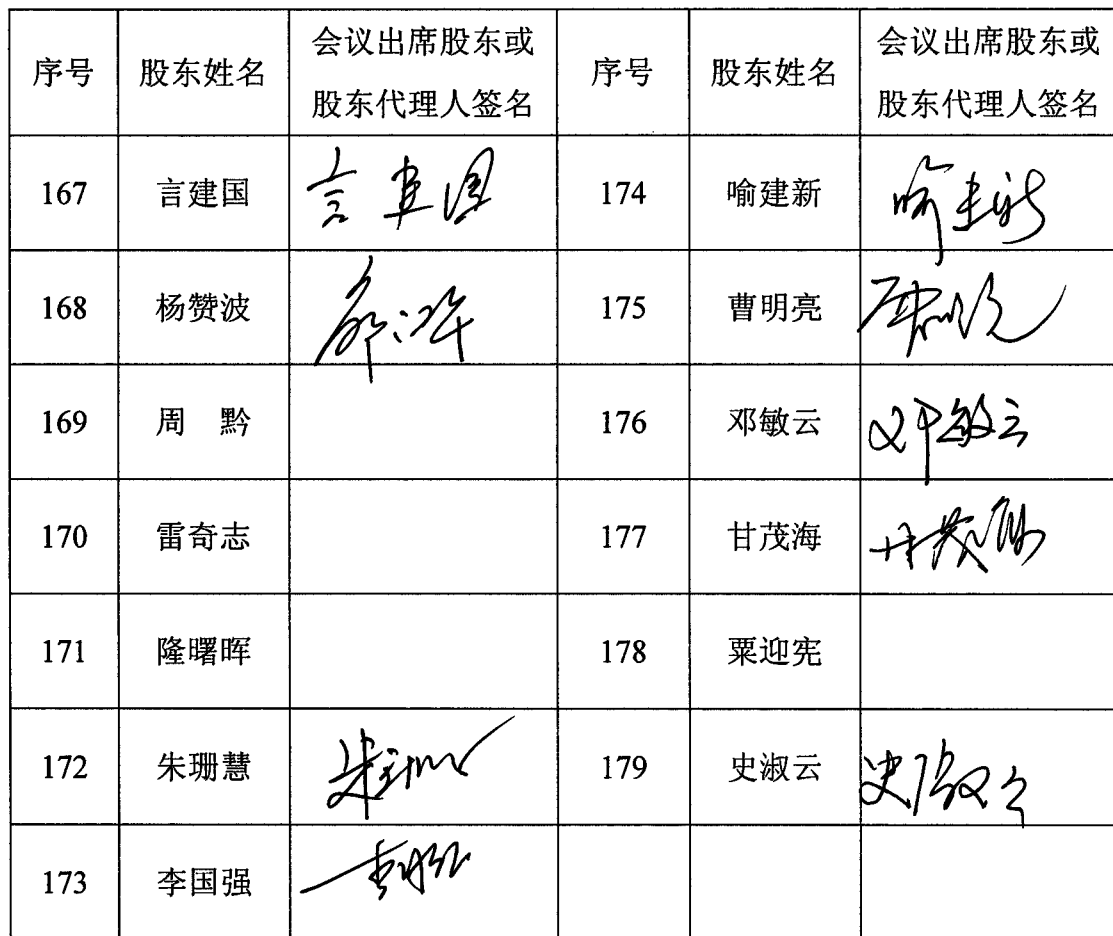 序号 股东姓名 会议出席股东或 序号 股东姓名 会议出席股东或
股东代理人签名 股东代理人签名
167 言建国 言建国 174 喻建新 喻建新
168 杨赞波 175 曹明亮
169 周 黔 176 邓敏云 邓敏云
170 雷奇志 177 甘茂海 甘茂海
171 隆曙晖 178 粟迎宪
172 朱珊慧 179 史淑云 史淑云
173 李国强